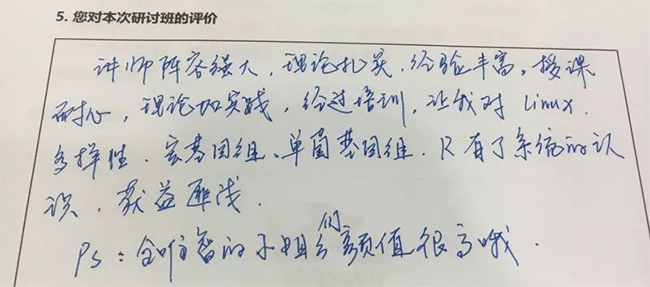 5. 您对本次研讨班的评价
讲师阵容强大，理论扎实，经验丰富，授课
耐心，理论加实践，经过培训，让我对 Linux.
多样性、宏基因组、单菌基因组、R有了系统的认
识，获益匪浅.
Ps：创吖智的小姐们颜值很高哦.